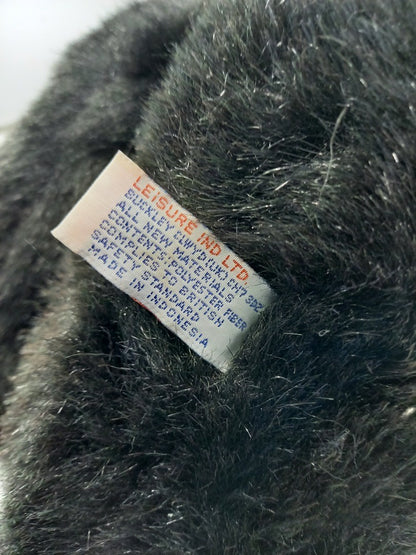 LEISURE IND LTD
BUCKLEY CLWYD(UK) CH7 3DZ
ALL NEW MATERIALS
CONTENTS:POLYESTER FIBER
COMPLIES TO BRITISH
SAFETY STANDARD
MADE IN INDONESIA